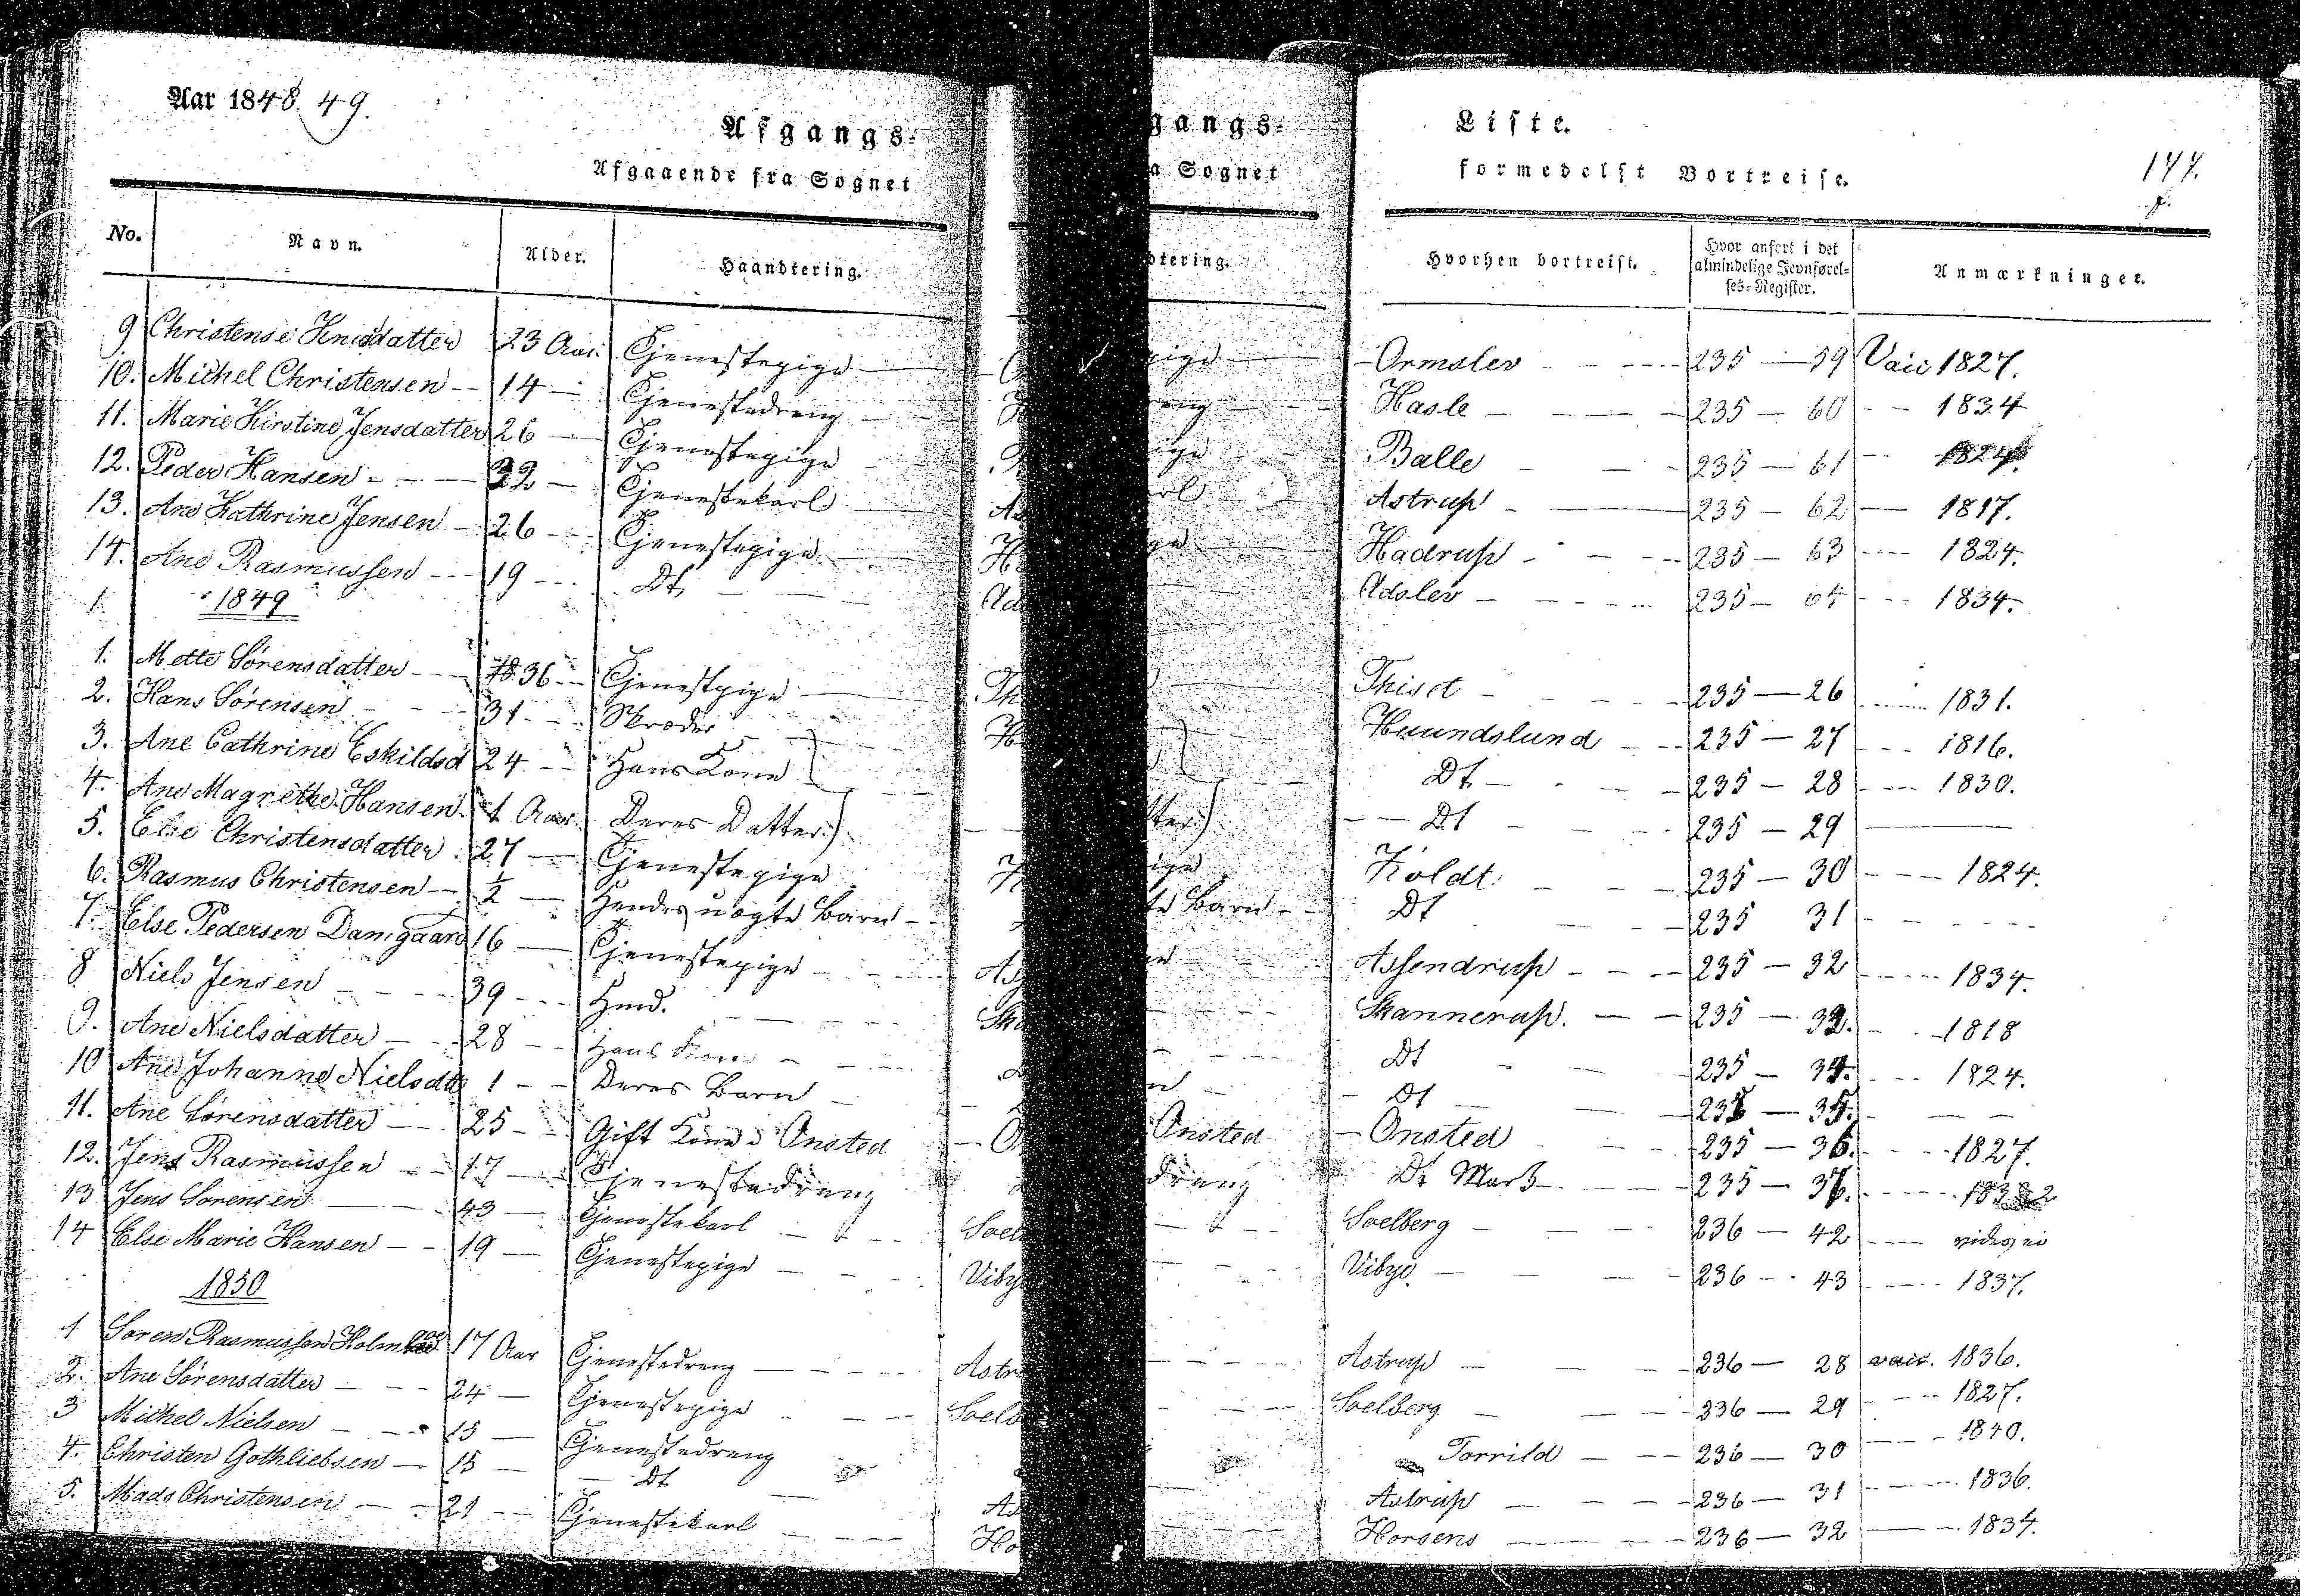 Aar 1848. 49.
Afgangs-
Afgaaende fra Sognet
gangs-
a Sognet
Liste.
formedelst Bortreise.
144.
No. Navn. Alder. Haandtering.
dtering. Hvorhen bortreist. Hvor anført i det almindelige Jevnførelses-Register. Anmærkninger.
9 Christense Knudsdatter 23 Aar. Tjenestepige Ormslev 235 — 59 Vacc 1827.
10. Michel Christensen 14 — Tjenestedreng Hasle 235 — 60 1834
11. Marie Kirstine Jensdatter 26 — Tjenestepige Balle 235 — 61 1824.
12. Peder Hansen 32 — Tjenestekarl Astrup 235 — 62 1817.
13. Ane Kathrine Jensen 26 — Tjenestepige Hadrup 235 — 63 1824.
14. Ane Rasmussen 19 — Dt, Adslev 235 — 64 1834.
1. 1849
1. Mette Sørensdatter 36 — Tjenestpige Thiset 235 — 26 1831.
2. Hans Sørensen 31 — Skræder Huundslund 235 — 27 1816.
3. Ane Cathrine Eskildsd 24 — Hans Kone Dt 235 — 28 1830.
4. Ane Magrethe Hansen 1 Aar Deres Datter Dt 235 — 29
5. Else Christensdatter 27 — Tjenestepige Koldt 235 — 30 1824.
6. Rasmus Christensen ½ — Hendes uægte Barn Dt 235 31
7. Else Pedersen Damgaard 16 — Tjenestepige Assendrup 235 — 32 1834.
8 Niels Jensen 39 — Hmd. Skannerup. 235 — 33. 1818
9. Ane Nielsdatter 28 — Hans Kone Dt 235 — 34. 1824.
10 Ane Johanne Nielsdtt 1 — Deres Barn Dt 235 — 35.
11. Ane Sørensdatter 25 — Gift Kone i Onsted Onsted 235 — 36. 1827.
12. Jens Rasmussen 17 — Tjenestedreng Dt Mark 235 — 37. 1832
13 Jens Sørensen 43 — Tjenestekarl Soelberg 236 — 42 vides ei
14 Else Marie Hansen 19 — Tjenestepige Vibye 236 — 43 1837.
1850
1 Søren Rasmussen 17 Aar Tjenestedreng Astrup 236 — 28 vacc. 1836.
2. Ane Sørensdatter 24 — Tjenestepige Soelberg 236 — 29 1827.
3 Michel Nielsen 15 — Tjenestedreng Torrild 236 — 30 1840.
4. Christen Gothliebsen 15 — Dt Astrup 236 — 31 1836.
5. Mads Christensen 21 — Tjenestekarl Horsens 236 — 32 1834.